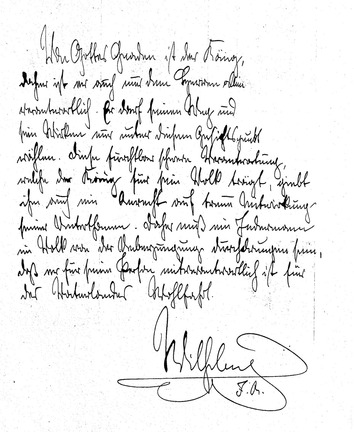 Von Gottes Gnaden ist der König,
daher ist er auch nur dem Herren allein
verantwortlich. Er darf seinen Weg und
sein Wirken nur unter diesem Gesichtspunkt
wählen. Diese furchtbar schwere Verantwortung,
welche der König für sein Volk trägt, giebt
ihm auch ein Anrecht auf treue Mitwirkung
seiner Unterthanen. Daher muß ein Jedermann
im Volk von der Ueberzeugung durchdrungen sein,
daß er für seine Person mitverantwortlich ist für
des Vaterlandes Wohlfahrt.
Wilhelm
I. R.